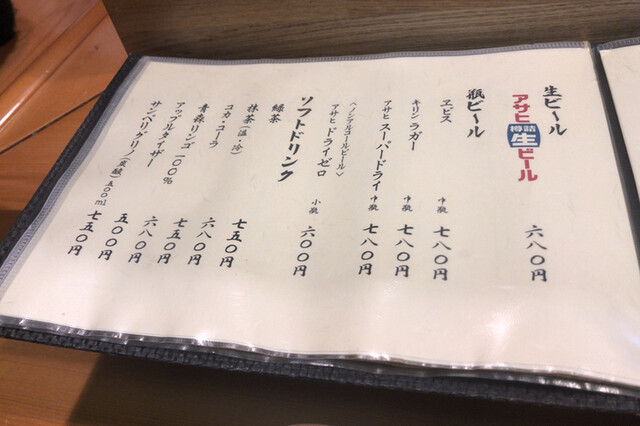 生ビール
アサヒ 樽詰 生 ビール 六八〇円
瓶ビール
ヱビス 中瓶 七八〇円
キリン ラガー 中瓶 七八〇円
アサヒ スーパードライ 中瓶 七八〇円
〈ノンアルコールビール〉
アサヒ ドライゼロ 小瓶 六〇〇円
ソフトドリンク
緑茶 七五〇円
抹茶(温・冷) 六八〇円
コカ・コーラ 七五〇円
青森リンゴ 一〇〇% 六八〇円
アップルタイザー 五〇〇円
サンペリグリノ(炭酸)五〇〇ml 七五〇円